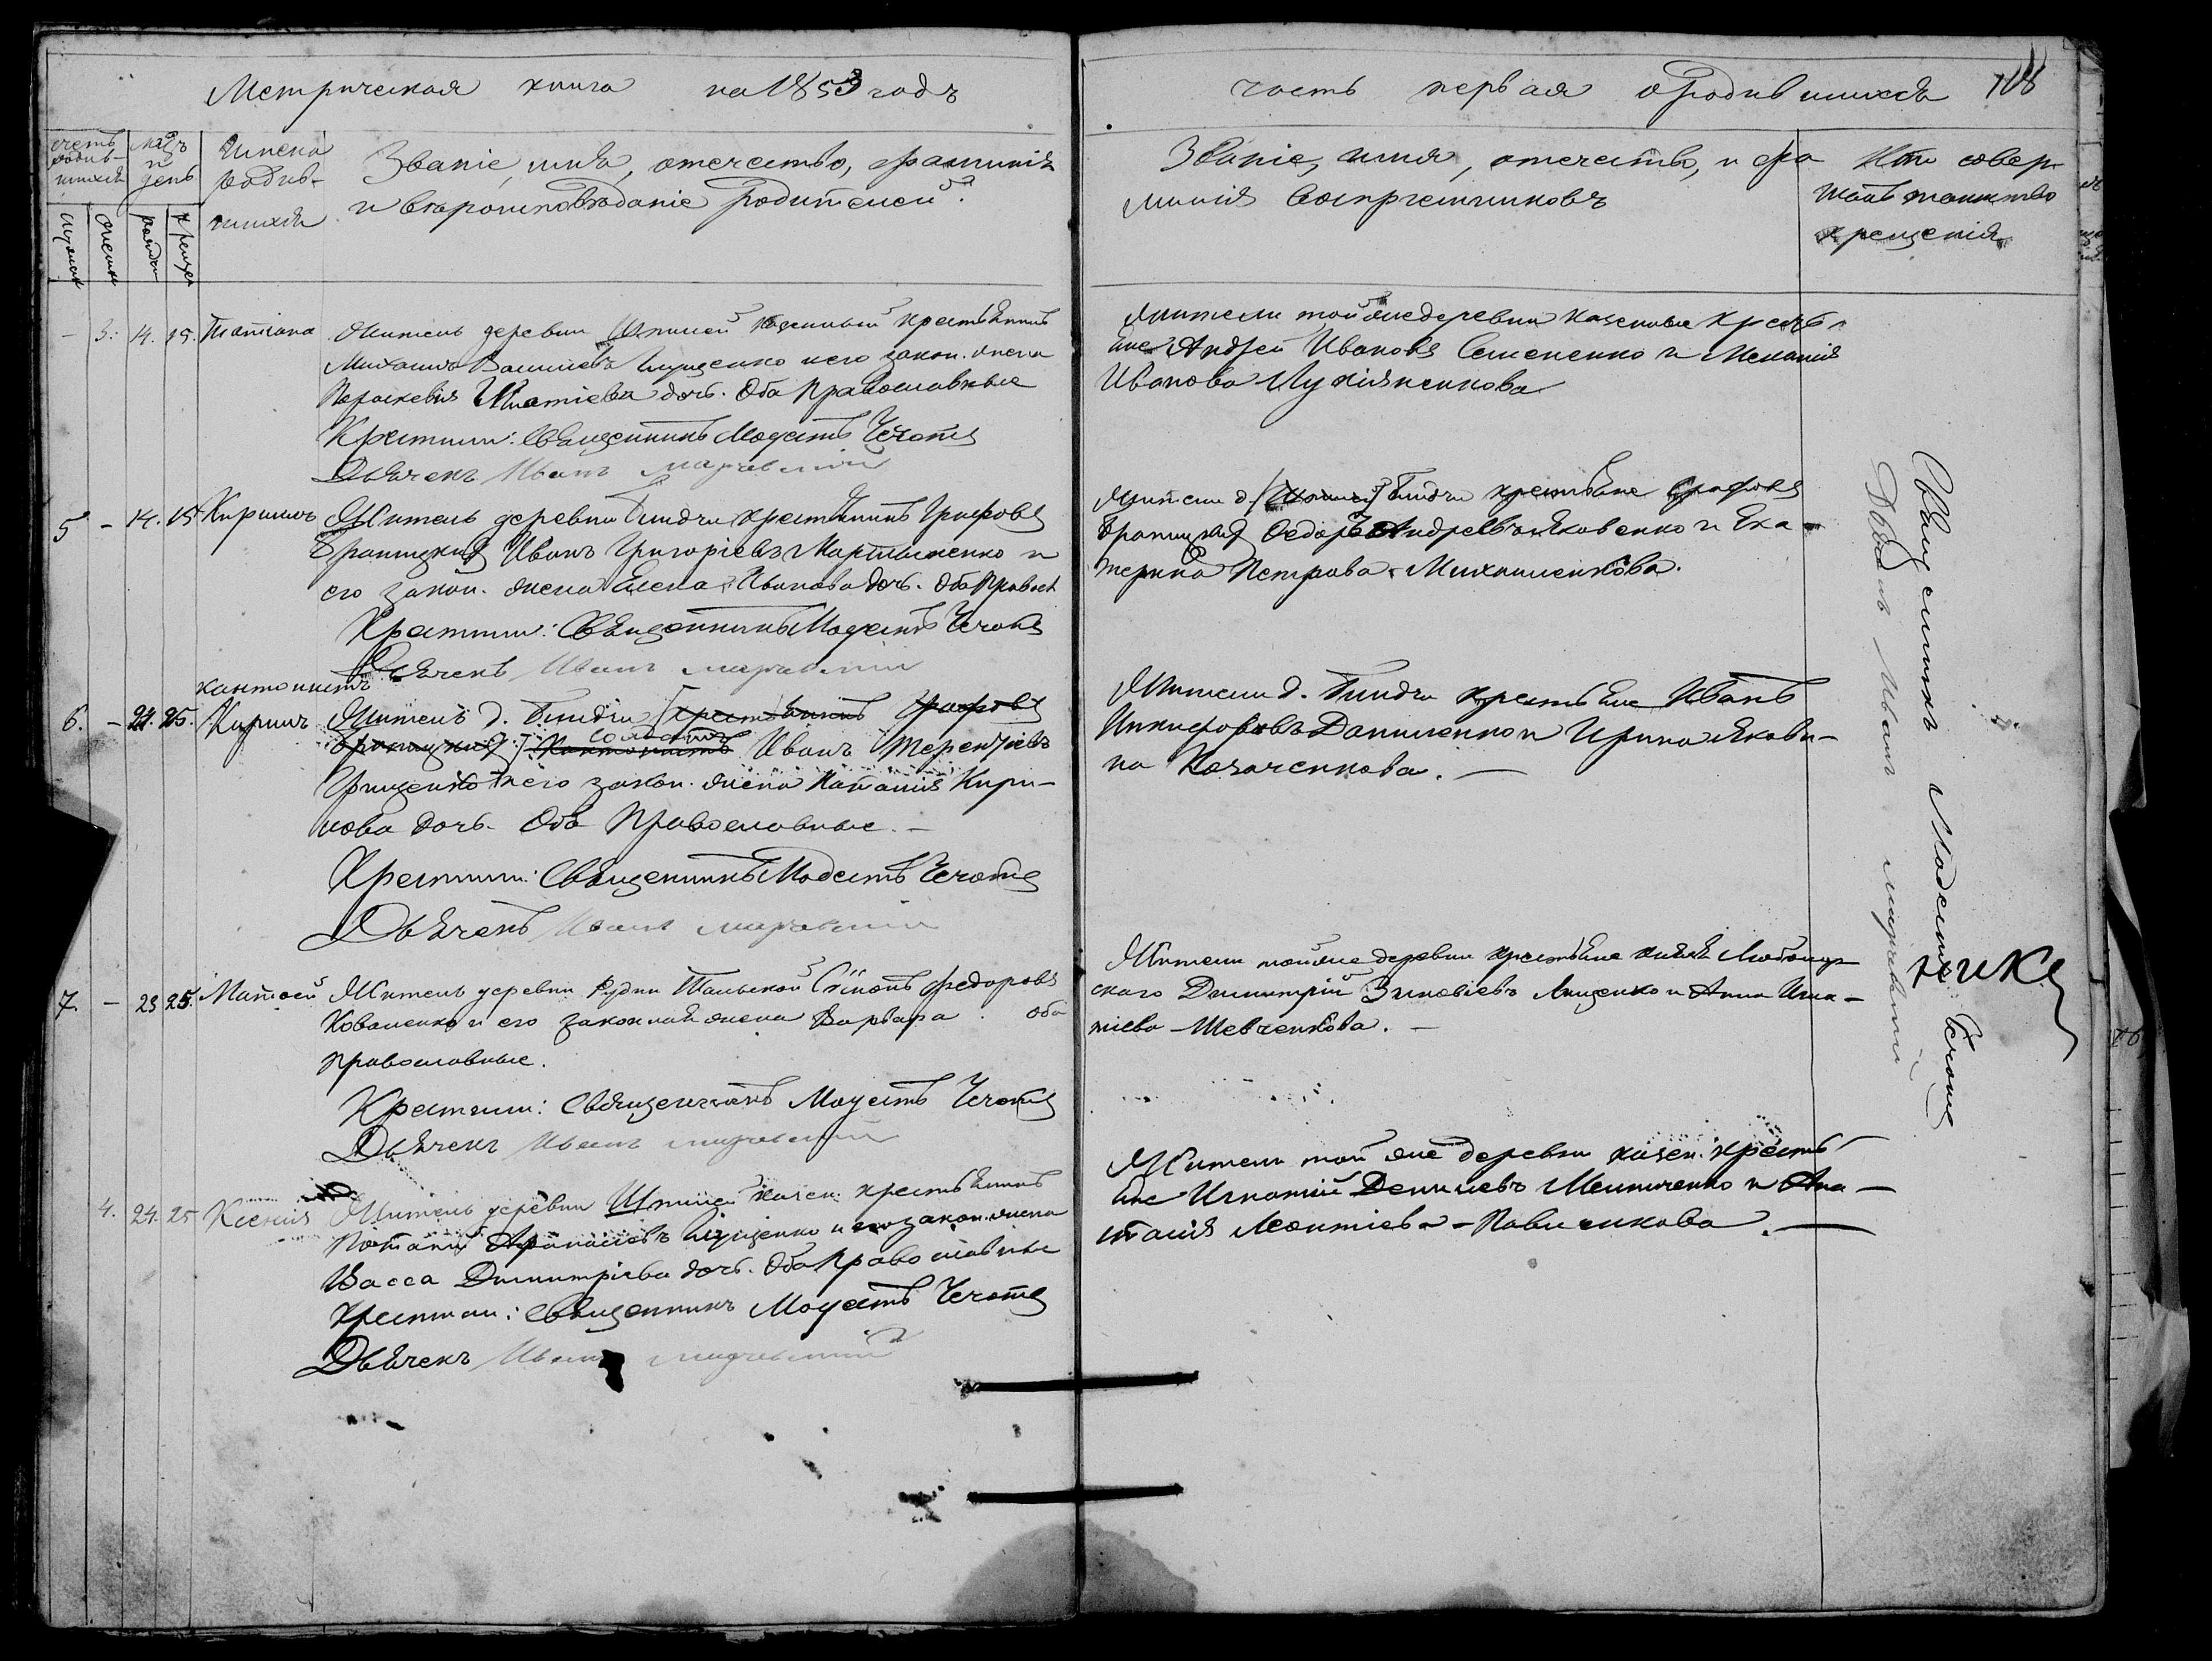 Метрическая книга на 1853 годъ
часть первая о родившихся 108
счетъ родив-
шихся
мѣ-ць
и
день
Имена
родив-
шихся
Званіе, имя, отечество, фамилія
и вѣроисповѣданіе родителей.
Званіе, имя, отечество, и фа
милія воспріемниковъ
Кто совер-
шалъ таинство
крещенія
- 3. 14. 15. Татіана Житель деревни казенный крестьянинъ
Михаилъ Васильевъ и его закон. жена
Параскевія Игнатіева дочь. Оба Православные
Крестили: Священникъ Модестъ Чечотъ
Дьячекъ Иванъ
Жители той же деревни казенные кресть-
яне Андрей Ивановъ Семененко и Меланія
Иванова Лукіяненкова
5 - 14. 15 Кириллъ Житель деревни крестьянинъ Графовъ
Браницкихъ Иванъ Григоріевъ Мартыненко и
его закон. жена Елена Иванова дочь. Оба Правосл
Крестили: Священникъ Модестъ Чечотъ
Дьячекъ Иванъ
Жители д. крестьяне Графовъ
Браницкихъ Ѳедоръ Андреевъ Яковенко и Ека-
терина Петрова Михайленкова.
кантонистъ
6. - 24. 25. Кирилъ Житель д. крестьянинъ Графовъ
солдатъ
Браницкихъ кантонистъ Иванъ Терентіевъ
Грищенко и его закон. жена Наталія Кири-
лова дочь. Оба Православные. -
Крестили: Священникъ Модестъ Чечотъ
Дьячекъ Иванъ
Жители д. крестьяне Иванъ
Никифоровъ Даниленко и Ирина Якови-
на Козаченкова. -
7. - 23 25. Матѳей Житель деревни Рудни Тальской Симонъ Федоровъ
Коваленко и его законная жена Варвара. Оба
православные.
Крестили: Священникъ Модестъ Чечотъ
Дьячекъ Иванъ
Жители той же деревни крестьяне князя Любомир-
скаго Димитрій Зиновіевъ Лященко и Анна Игна-
тіева Шевченкова. -
4. 24. 25 Ксенія Житель деревни казен. крестьянинъ
Потапій Афанасіевъ и его закон. жена
Васса Димитріева дочь. Оба Православные
Крестили: Священникъ Модестъ Чечотъ
Дьячекъ Иванъ
Жители той же деревни казен. кресть-
яне Игнатій Данилевъ Мельниченко и Ана-
стасія Леонтіева
Священникъ Модестъ Чечотъ
Дьячекъ Иванъ